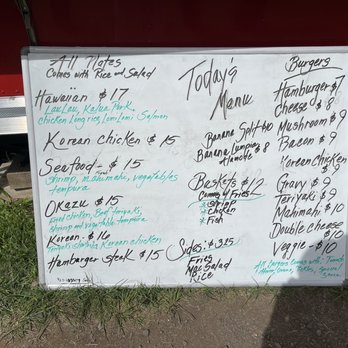 All Plates
Comes with Rice and Salad
Hawaiian $17
Lau Lau, Kalua Pork,
chicken long rice, Lomi Lomi Salmon
Korean chicken $15
Seafood - $15
Shrimp, mahimahi, vegetables
tempura
Okazu $15
fried chicken, Beef teriyaki,
shrimp and vegetable tempura
Korean - $16
Korean chicken
Hamburger steak $15
Today's
Menu
Banana Split
Banana Lumpia
$8
Baskets $12
Comes w/ Fries
* Shrimp
* Chicken
* Fish
Sides: $3.25
Fries
Mac Salad
Rice
Burgers
Hamburger $7
Cheese $8
Mushroom $9
Bacon $9
Korean Chicken
$9
Gravy $9
Teriyaki $9
Mahimahi $10
Double cheese
$10
Veggie - $10
All burgers comes with - Tomato